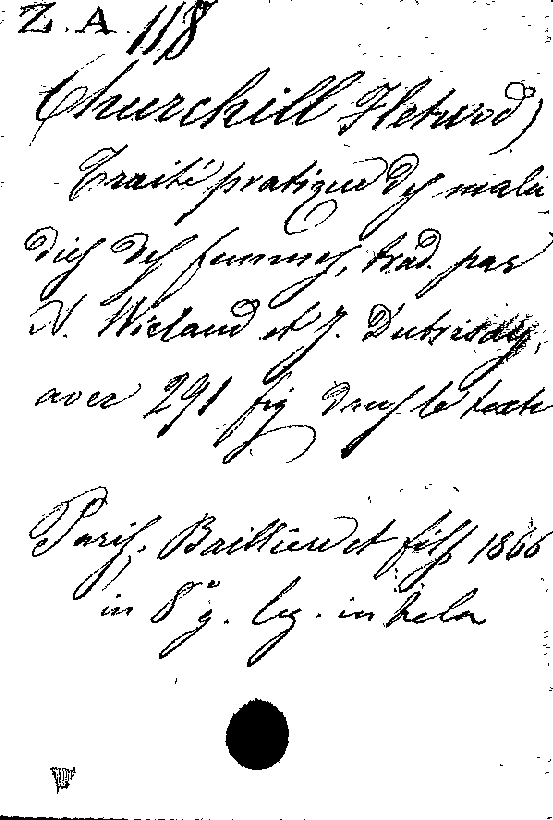 Z. A. 118
Churchill Fletwod)
Traité pratique des mala
dies des femmes, trad. par
A. Wieland et J. Dubrisay,
avec 291 fig dans le texte
Paris, Baillière et fils 1866
in 8° g. leg. in tela